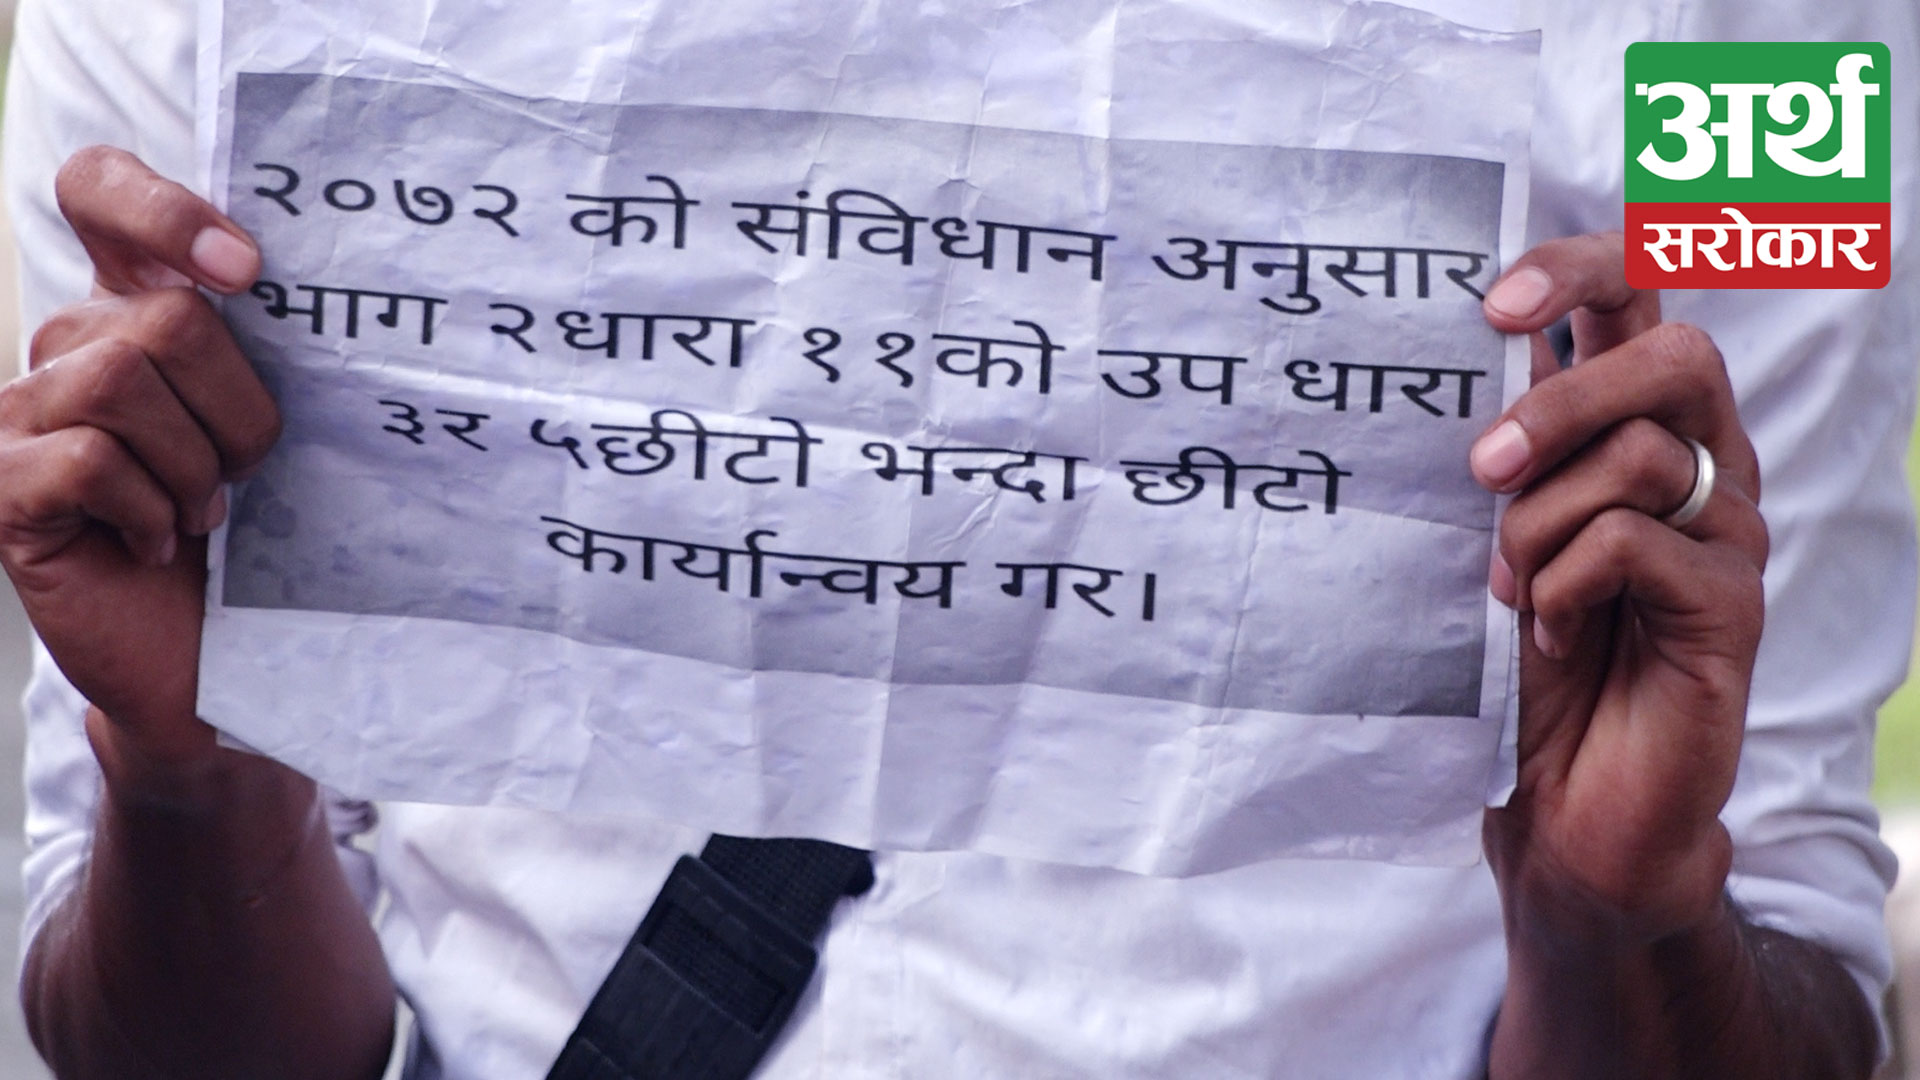 २०७२ को संविधान अनुसार
भाग २धारा ११को उप धारा
३र ५छीटो भन्दा छीटो
कार्यान्वय गर।
अर्थ
सरोकार